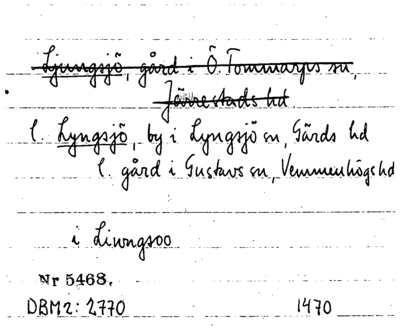 Ljungsjö, gård i Ö. Tommarps sn,
Järrestads hd
l. Lyngsjö, by i Lyngsjö sn, Gärds hd
l. gård i Gustavs sn, Vemmenhögs hd
i Liwngsoo
Nr 5468.
DBM2: 2770 1470